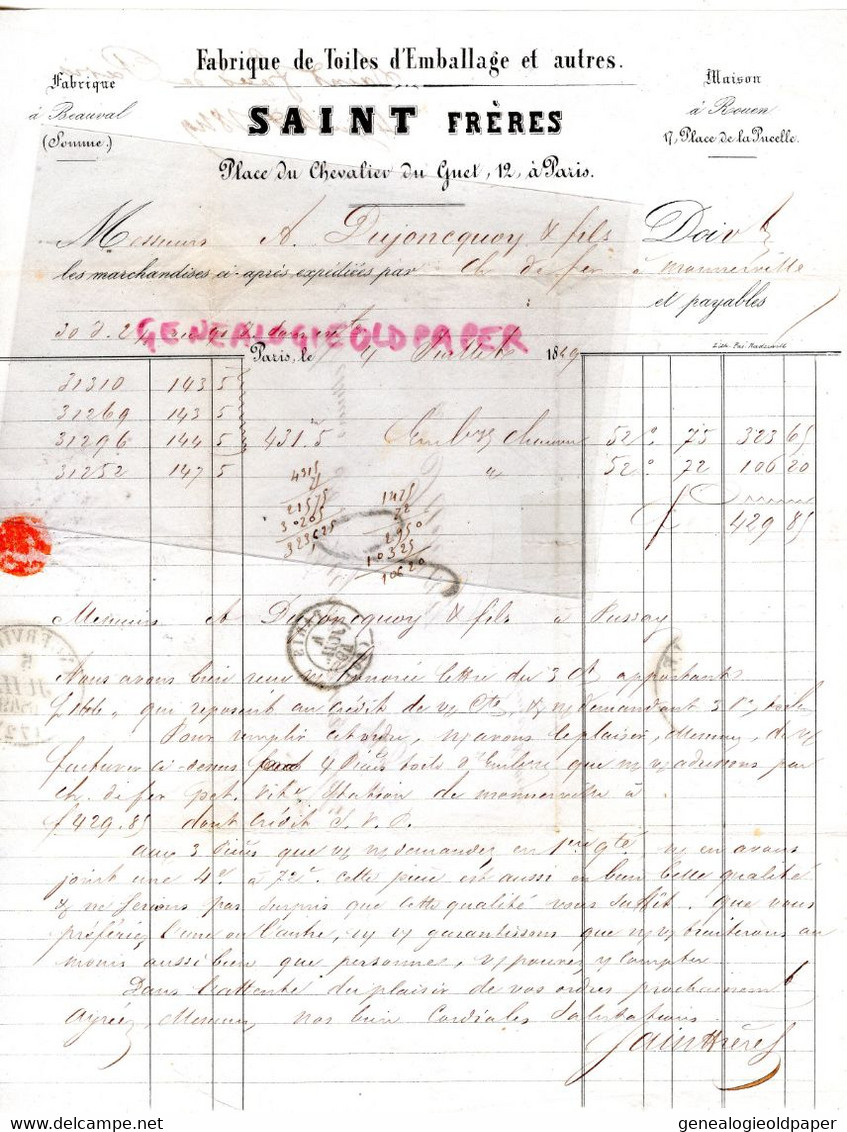 Fabrique de Toiles d'Emballage et autres.
Fabrique
à Beauval
(Somme.)
SAINT FRÈRES
Maison
à Rouen
17, Place de la Pucelle.
Place du Chevalier du Guet, 12, à Paris.
Messieurs A. Dujoncquoy & fils Doivt
les marchandises ci-après expédiées par ch de fer à monnerville
et payables
30 d. 2%
GENEALOGIEOLDPAPER
Paris, le 4 Juillet 1849
31310 143 5
31269 143 5
31296 144 5 431.5 Embge chanvre 52c. 75 323 65
31252 147 5 " 52c. 72 106 20
429 85
4315
21575
30205
323625
1475
72
2950
10325
10620
Messieurs A Dujoncquoy & fils à Pussay
PARIS
Nous avons bien reçu votre honorée lettre du 3 Ct apportant
qui reposent au crédit de v/ Cte, & n/ demandant 3 Pces toiles
Pour remplir cet ordre, n/ avons le plaisir, Messieurs, de v/
facturer ci-dessus 4 Pièces toile d'Embge que n/ v/ adressons par
ch. de fer pet. Vite Station de monnerville à
f 429.85 dont crédit S.V.P.
aux 3 pièces que v/ n/ demandez en 1ere qté n/ en avons
joint une 4e à 72c. cette pièce est aussi en bien belle qualité
& ne serions pas surpris que cette qualité vous suffît. que vous
préfériez l'une ou l'autre, n/ v/ garantissons que n/ v/ traiterons au
moins aussi bien que personne, v/ pouvez y compter
Dans l'attente du plaisir de vos ordres prochainemt
agréez, Messieurs, nos bien cordiales salutations
Saint Frères
genealogieoldpaper